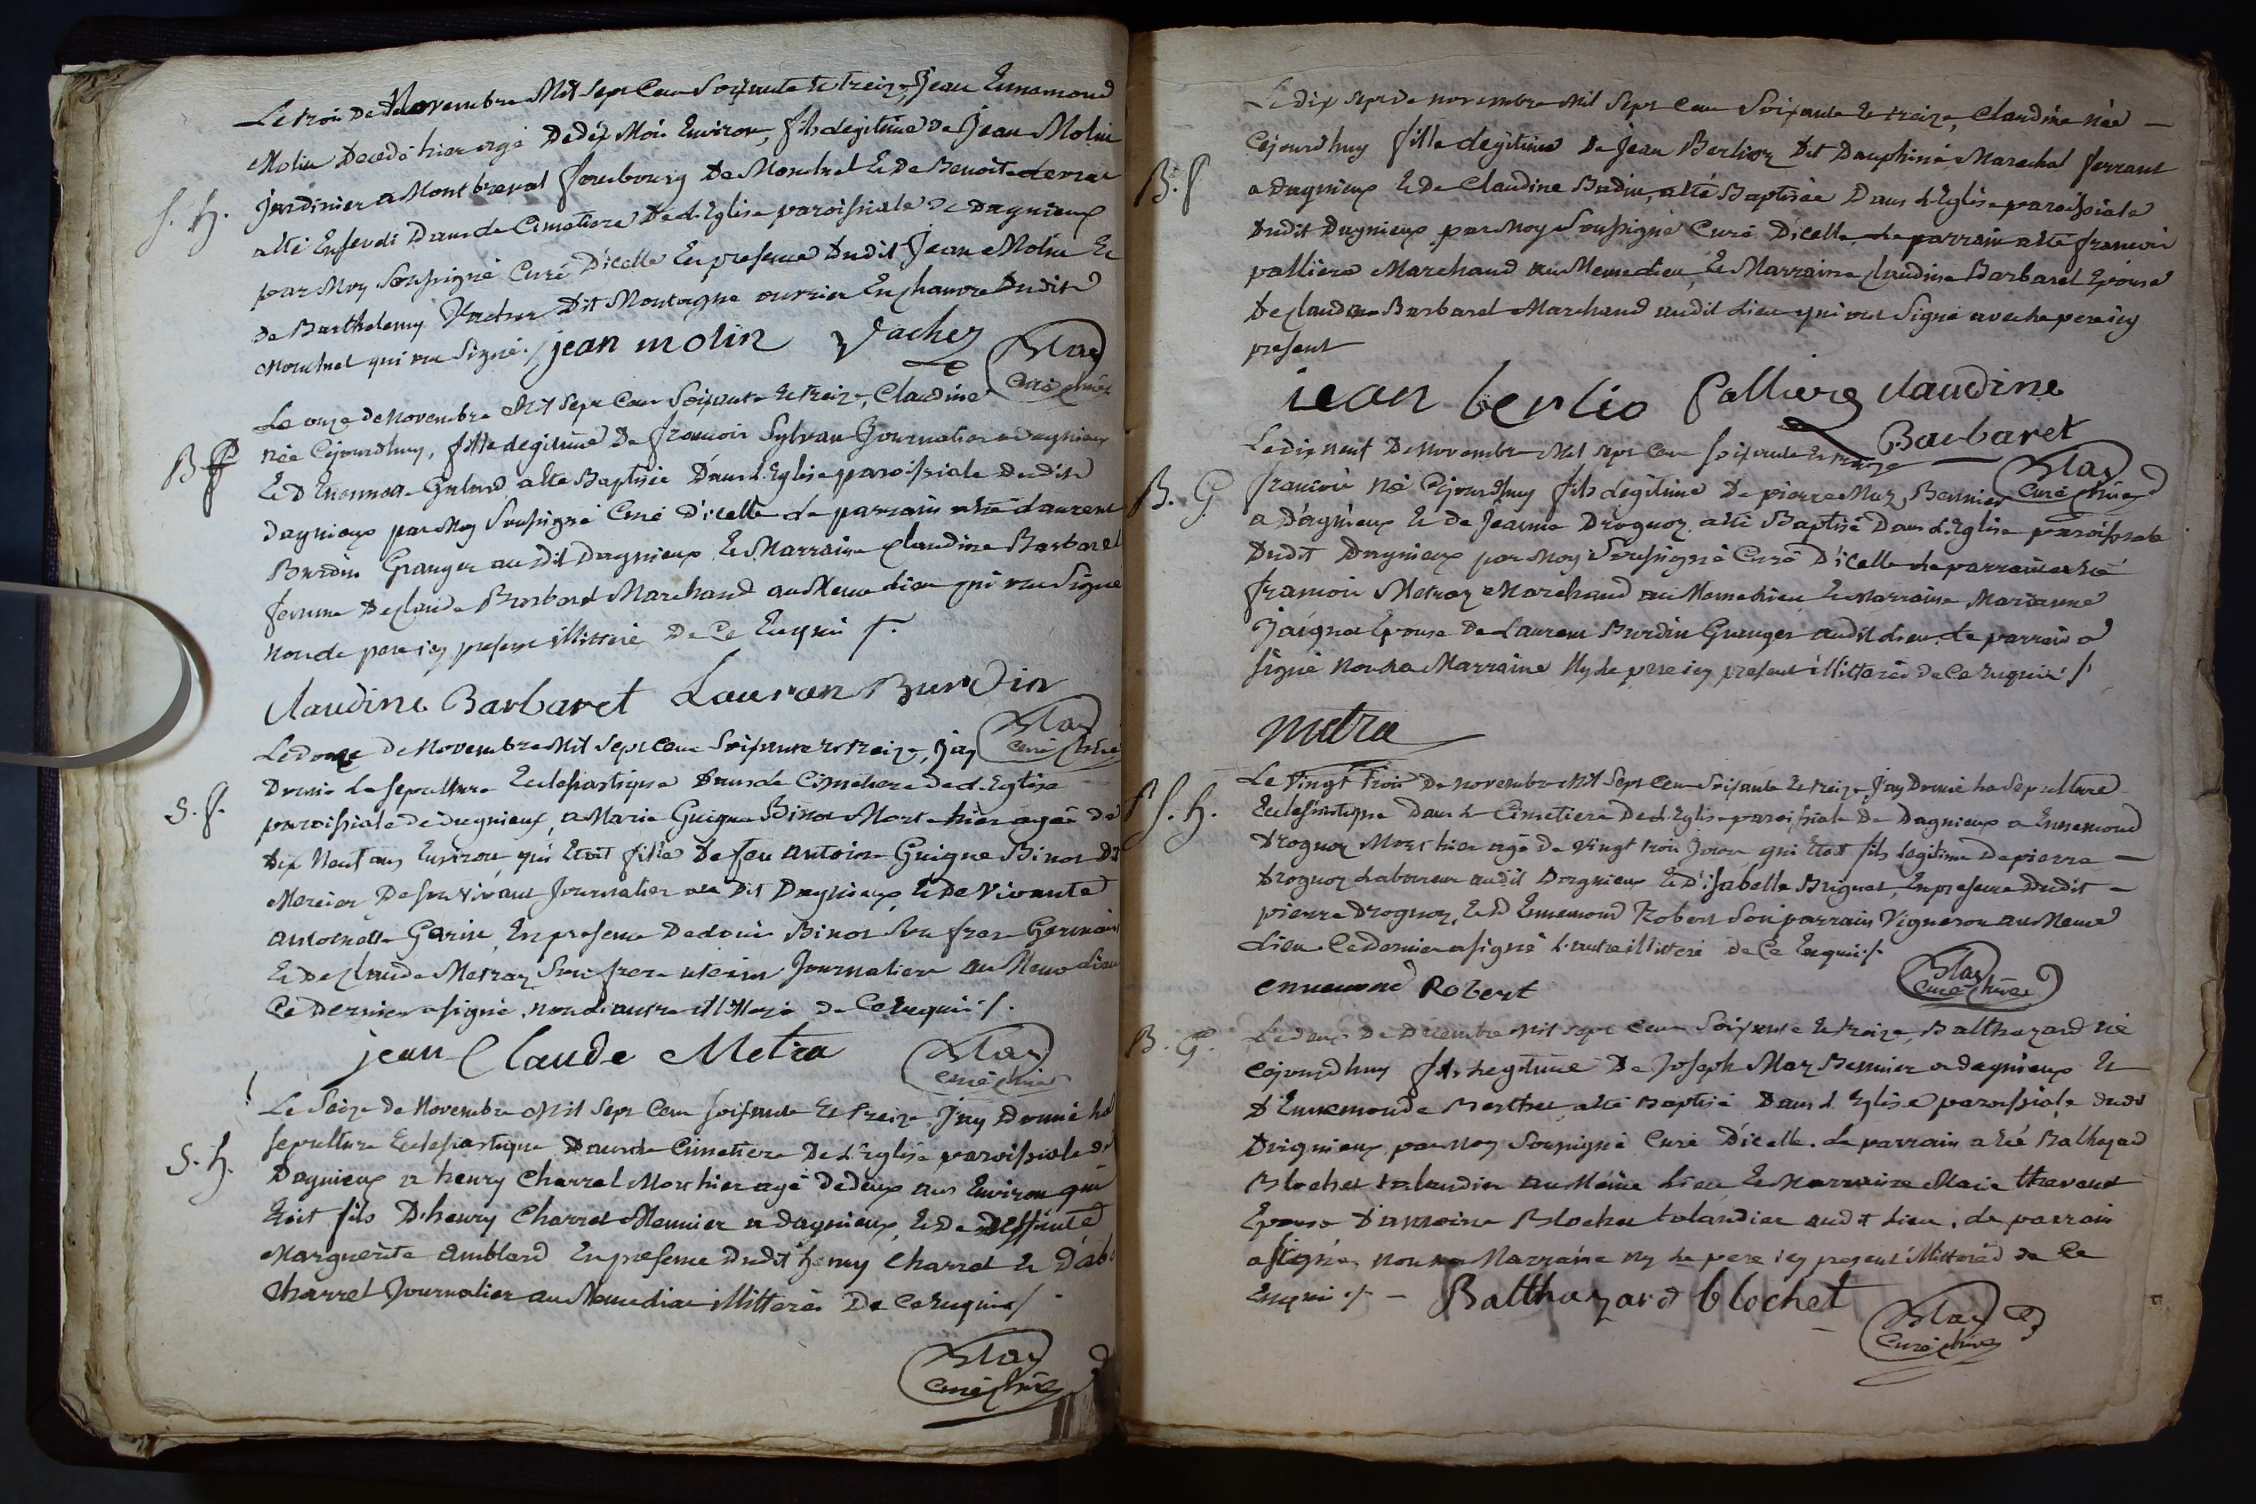 Le trois De Novembre Mil Sept Cent Soixante et treize, Jean Ennemond
Molin Decedé hier agé De dix Mois Environ, fils legitime De Jean Molin
S. h. Jardinier a Montbreval fauxbourg De Montluel Et De Benoite
a été Enseveli Dans le Cimetiere De l'Eglise paroissiale De Dagnieux
par Moy Soussigné Curé D'icelle En presence Dudit Jean Molin Et
De Barthelemy Vacher Dit Montagne ouvrier En chanvre Dudit
Montluel qui ont Signé. jean molin Vacher
Blay curé
Le onze De Novembre Mil Sept Cent Soixante Et treize, Claudine
B f Née Cejourdhuy, fille legitime De francois Sylvan Journalier a Dagnieux
Et D'Ennemonde a été Baptisée Dans l'Eglise paroissiale Dudit
Dagnieux par Moy Soussigné Curé D'icelle le parrain a été Laurent
Burdin Granger audit Dagnieux Et Marraine Claudine Barbaret
femme De Claude Barbaret Marchand au Meme lieu qui ont Signé
Non le pere icy present illitteré De Ce Enquis /.
Claudine Barbaret Lauran Burdin
Blay curé
Le douze De Novembre Mil Sept Cent Soixante et treize, J'ay
Donné la sepulture Eclesiastique Dans le Cimetiere De l'Eglise
S. f. paroissiale De Dagnieux, a Marie Guigue Binos Morte hier agée De
Dix Neuf ans Environ, qui Etoit fille De feu Antoine Guigue Binos Dit
Mercier De Son Vivant Journalier au Dit Dagnieux, Et De Vivante
antoinette Garin, En presence De Louis Binos Son frere Germain
Et De Claude Metraz Son frere uterin Journaliers au Meme lieu
Ce Dernier a signé, non l'autre illitteré De Ce Enquis /.
jean Claude Metra
Blay curé
Le Seize De Novembre Mil Sept Cent soixante Et treize J'ay Donné la
S. h. sepulture Eclesiastique Dans le Cimetiere De l'Eglise paroissiale De
Dagnieux a henry Charrel Mort hier agé De deux ans Environ qui
Etoit fils D'henry Charrel Meunier a Dagnieux, Et De Deffunte
Marguerite Amblard En presence Dudit henry Charrel Et D'
Charrel Journalier au Meme lieu illitterés De Ce Enquis /.
Blay curé
Le dix Sept De novembre Mil Sept Cent Soixante Et treize, Claudine Née
B. f Cejourdhuy fille legitime De Jean Berlioz Dit Dauphiné Marechal ferrant
a Dagnieux Et De Claudine Budin, a été Baptisée Dans l'Eglise paroissiale
Dudit Dagnieux par Moy Soussigné Curé D'icelle le parrain a été francois
palliere Marchand au Meme lieu, Et Marraine Claudine Barbaret Epouse
De Claude Barbaret Marchand audit Lieu qui ont Signé avec le pere icy
present
jean berlio Palliere claudine
Barbaret
Blay curé
Le dix neuf De Novembre Mil Sept Cent soixante Et treize
B. G francois Né Cejourdhuy fils legitime De pierre Maz, Bennier
a Dagnieux Et De Jeanne Droguoz a été Baptisé Dans l'Eglise paroissiale
Dudit Dagnieux par Moy Soussigné Curé D'icelle le parrain a été
francois Metraz Marchand au Meme lieu Et Marraine Marianne
Epouse De Laurent Burdin Granger audit Lieu. Le parrain a
signé non la Marraine Ny le pere icy present illitterés De Ce Enquis /.
metra
Le Vingt trois De novembre Mil Sept Cent Soixante Et treize J'ay Donné la Sepulture
S. h. Eclesiastique Dans le Cimetiere De l'Eglise paroissiale De Dagnieux a Ennemond
Droguoz Mort hier agé De Vingt trois Jours qui Etoit fils legitime De pierre
Droguoz Laboureur audit Dagnieux Et D'isabelle Brignet, En presence Dudit
pierre Droguoz, Et D'Ennemond Robert Son parrain Vigneron au Meme
Lieu Ce Dernier a signé l'autre illitteré De Ce Enquis /.
ennemond Robert
Blay curé
B. G. Le deux De Decembre Mil Sept Cent Soixante Et treize, Balthazard né
Cejourdhuy fils legitime De Joseph Maz Bennier a Dagnieux Et
D'Ennemonde Berthet a été Baptisé Dans l'Eglise paroissiale Dudit
Dagnieux par Moy Soussigné Curé D'icelle. Le parrain a été Balthazard
Blochet au Même Lieu Et Marraine Marie
Epouse D'antoine Blochet audit Lieu, le parrain
a signé, non la Marraine ny le pere icy present illitterés De Ce
Enquis /. Balthazard blochet
Blay curé